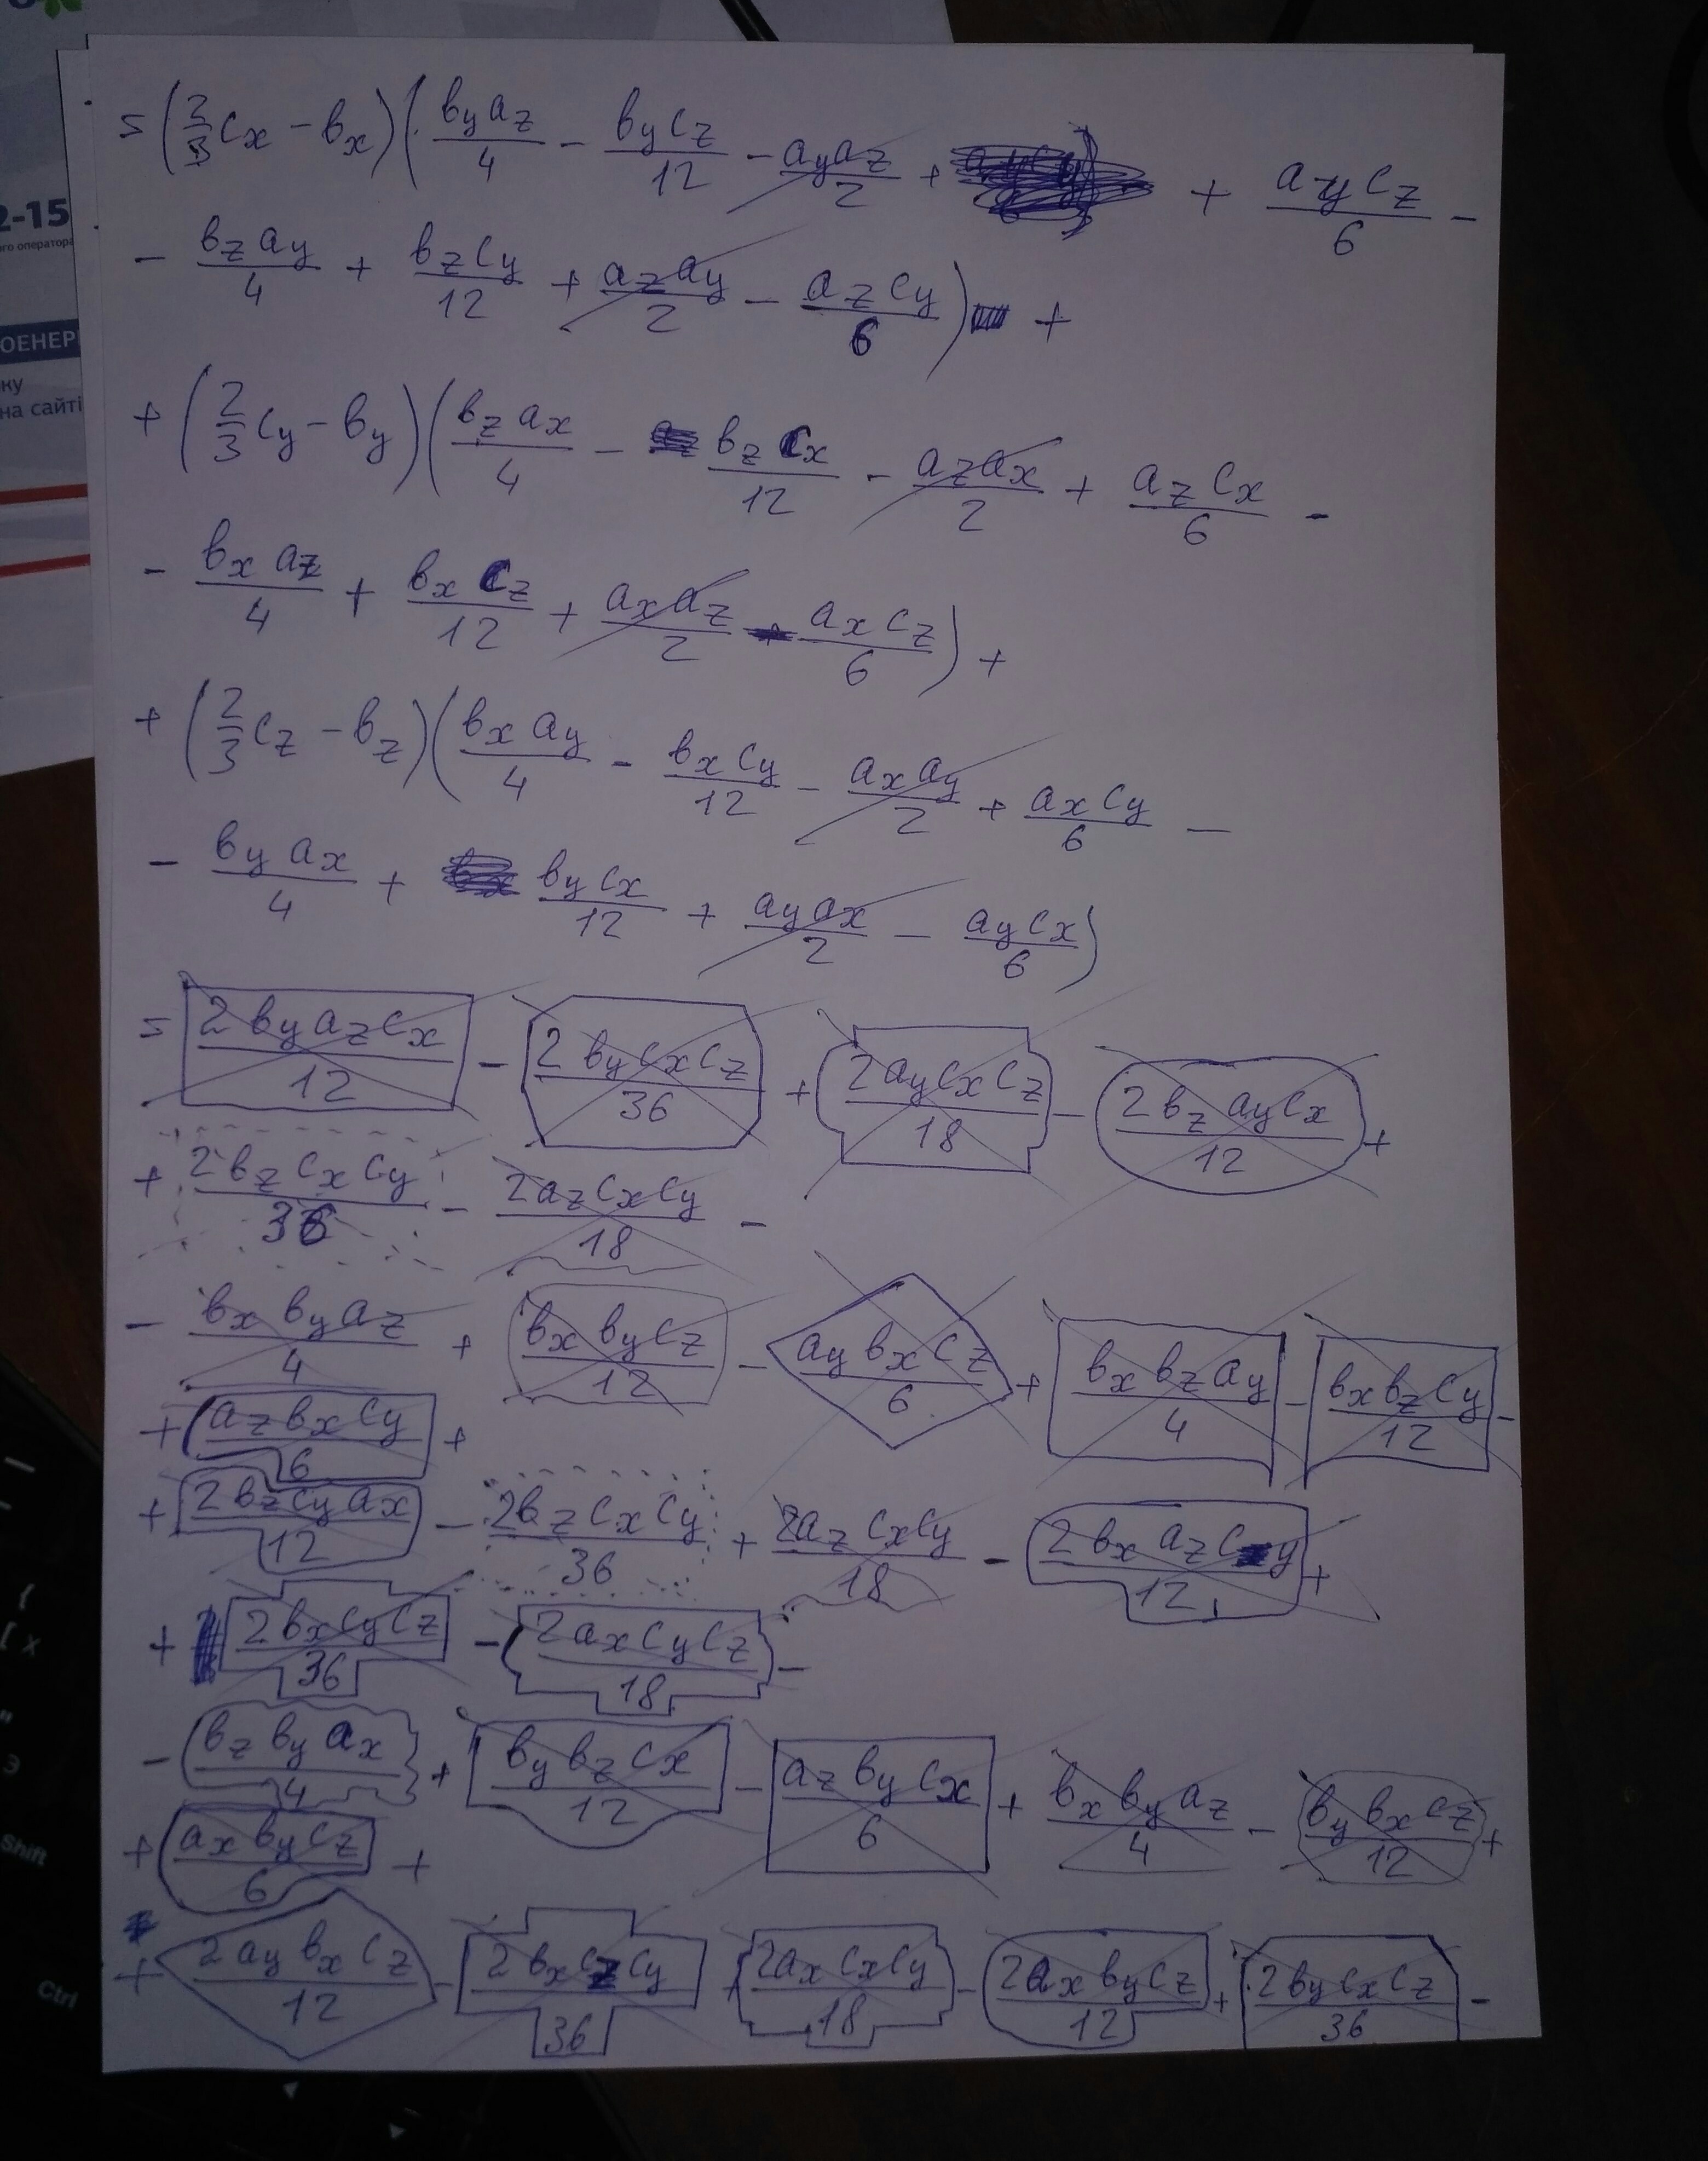 2-15
ого оператора
ОЕНЕР
ку
на сайті
= (2/3 cx - bx)(by az/4 - by cz/12 - ay az/2 + + ay cz/6 -
- bz ay/4 + bz cy/12 + az ay/2 - az cy/6) +
+ (2/3 cy - by)(bz ax/4 - bz cx/12 - az ax/2 + az cx/6 -
- bx az/4 + bx cz/12 + ax az/2 - ax cz/6) +
+ (2/3 cz - bz)(bx ay/4 - bx cy/12 - ax ay/2 + ax cy/6 -
- by ax/4 + by cx/12 + ay ax/2 - ay cx/6)
= 2 by az cx/12 - 2 by cx cz/36 + 2 ay cx cz/18 - 2 bz ay cx/12 +
+ 2 bz cx cy/36 - 2 az cx cy/18 -
- bx by az/4 + bx by cz/12 - ay bx cz/6 + bx bz ay/4 - bx bz cy/12 -
+ az bx cy/6 +
+ 2 bz cy ax/12 - 2 bz cx cy/36 + 2 az cx cy/18 - 2 bx az cy/12 +
+ 2 bx cy cz/36 - 2 ax cy cz/18 -
- bz by ax/4 + by bz cx/12 - az by cx/6 + bx by az/4 - by bx cz/12 +
+ ax by cz/6 +
+ 2 ay bx cz/12 - 2 bx cz cy/36 + 2 ax cx cy/18 - 2 ax by cz/12 + 2 by cx cz/36 -
Shift
Ctrl